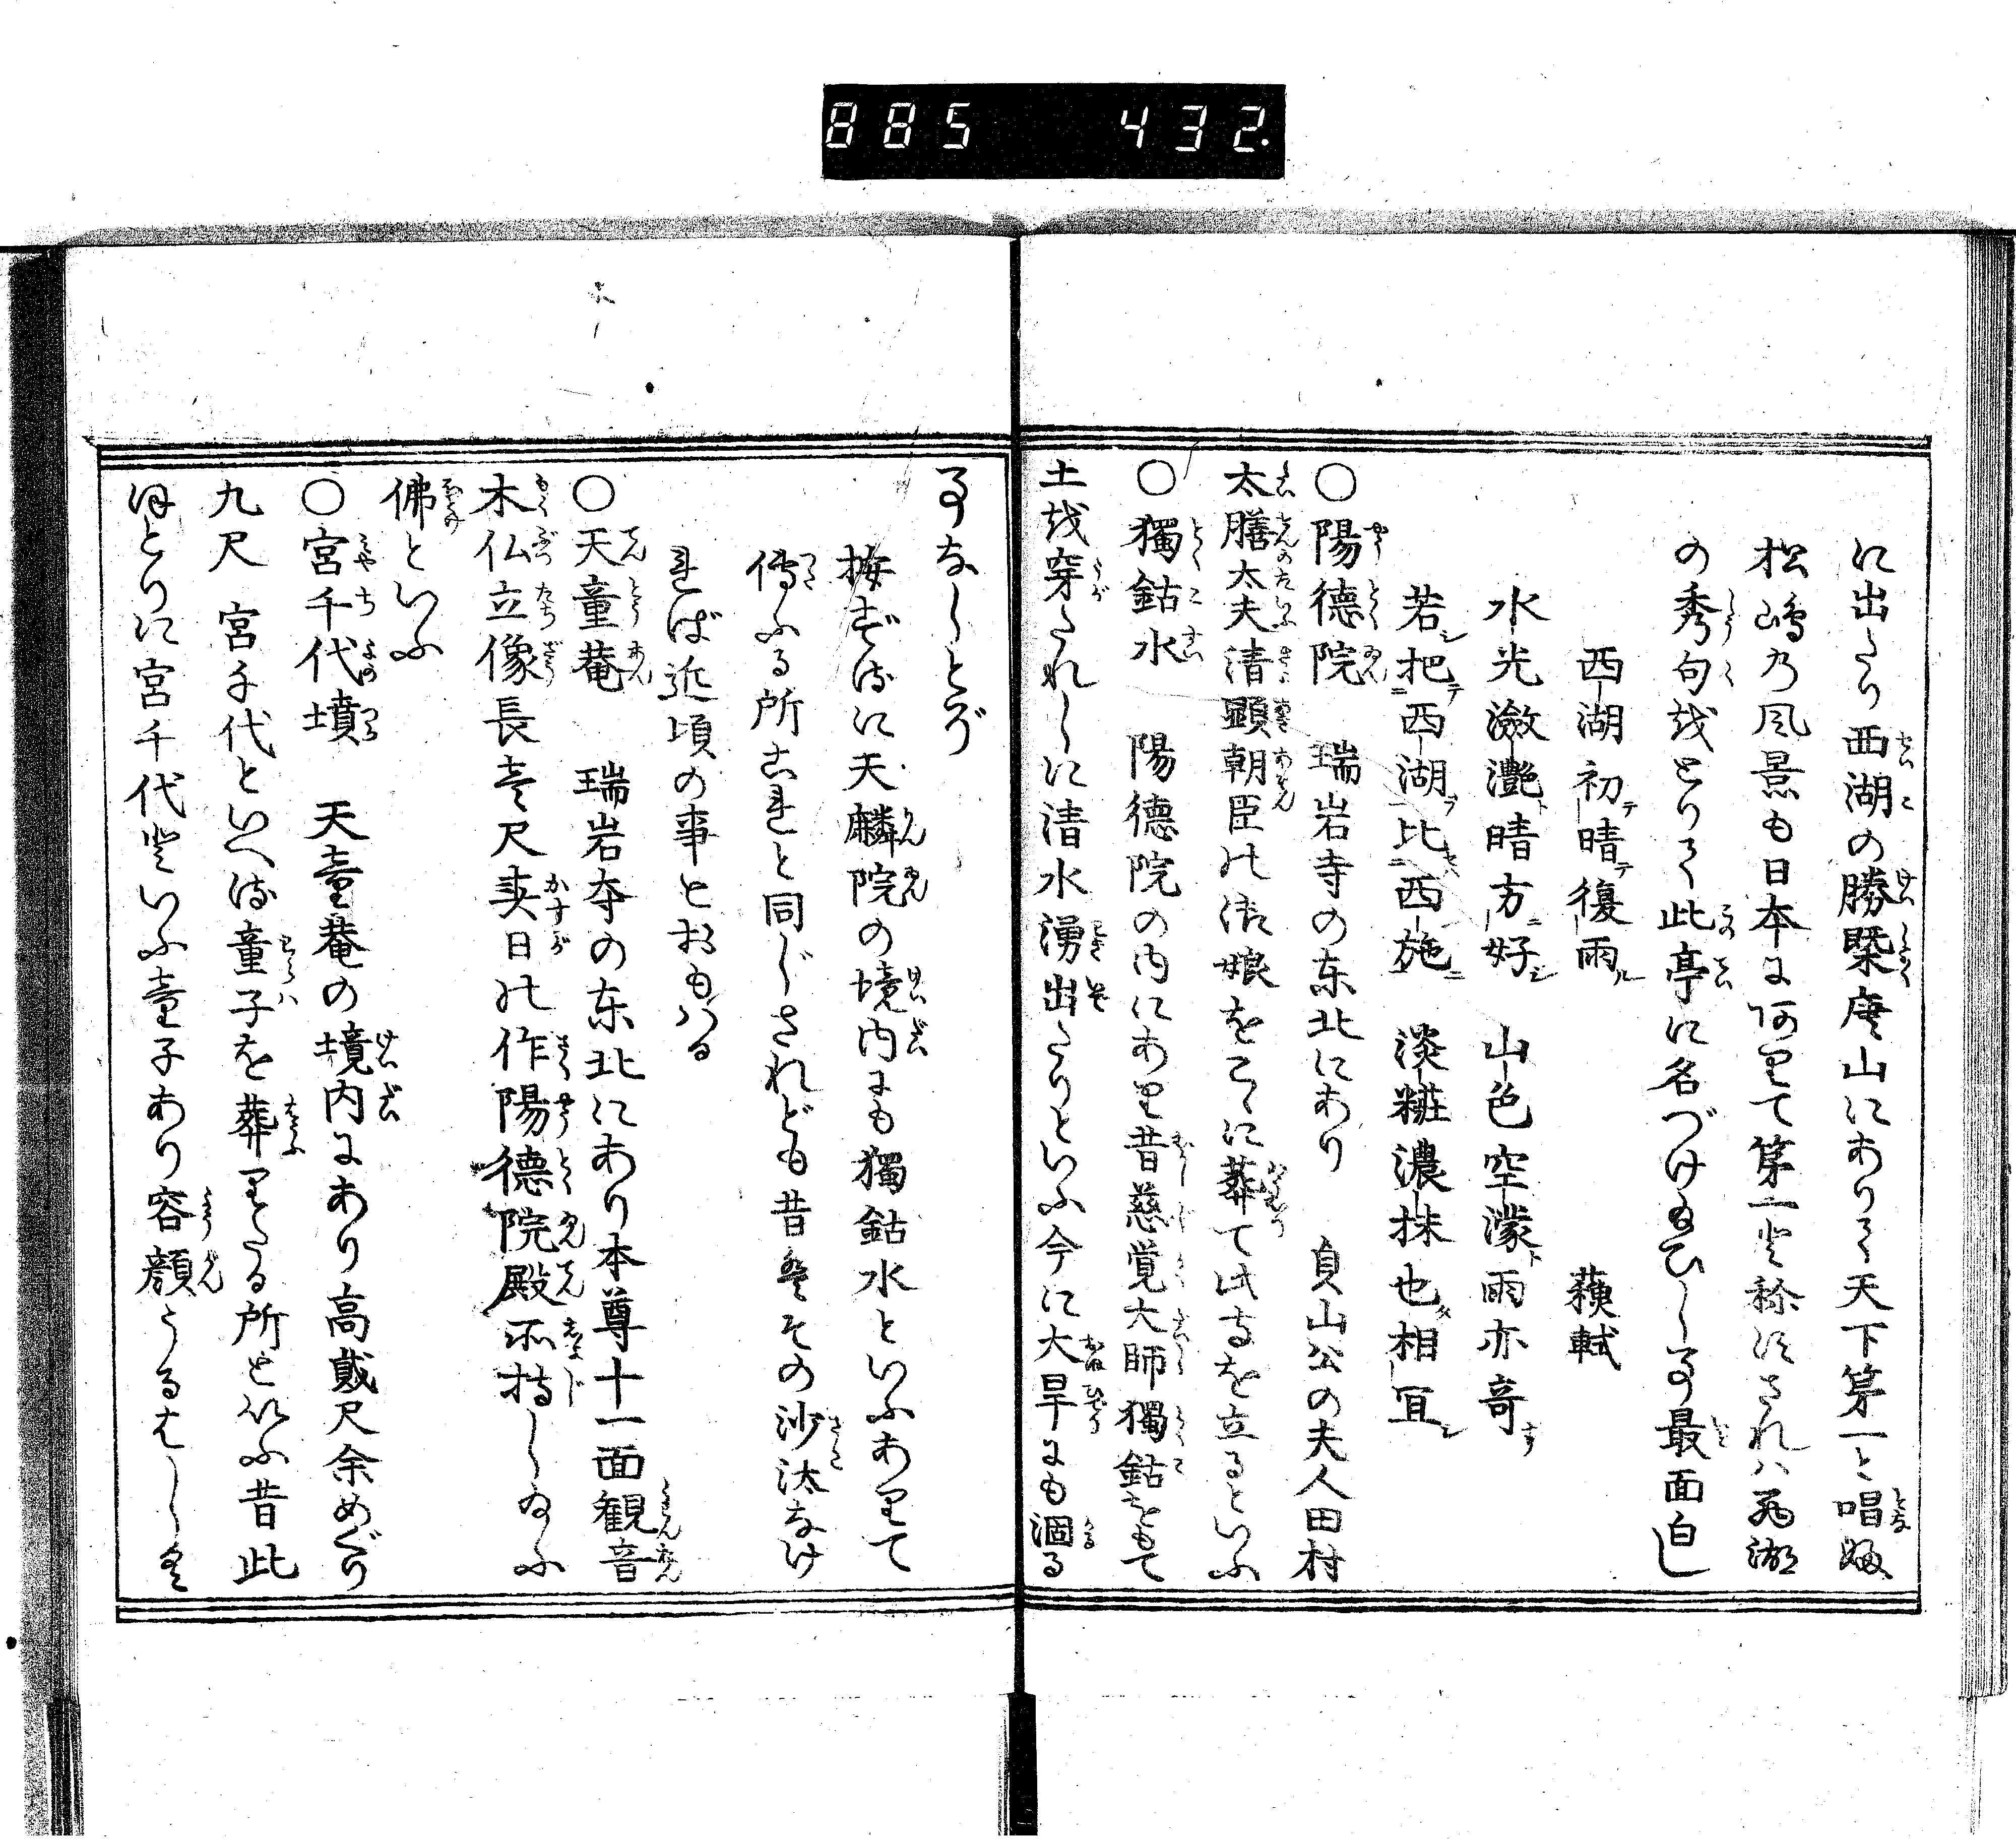 885 432.
に出たり西湖の勝槩廬山にありて天下第一と唱ふ
松嶋の風景も日本に有て第一と称すされハ西湖
の秀句をとりて此亭に名づけ給ひし事最面白し
西湖初晴復雨 蘓軾
水光瀲灔晴方好 山色空濛雨亦奇
若把西湖比西施 淡糚濃抹也相宜
○陽徳院 瑞岩寺の东北にあり 貞山公の夫人田村
太膳太夫清顕朝臣の御娘をこゝに葬て此寺を立るといふ
○獨鈷水 陽徳院の内にあり昔慈覚大師獨鈷をもて
土を穿たれしに清水湧出たりといふ今に大旱にも涸る
事なしとぞ
按ずるに天麟院の境内にも獨鈷水といふありて
傳ふる所これと同じされども昔ハその沙汰なけ
れば近頃の事とおもハる
○天童菴 瑞岩寺の东北にあり本尊十一面観音
木仏立像長壱尺春日の作陽徳院殿所持し給ふ
佛といふ
○宮千代墳 天童菴の境内にあり高貳尺余めぐり
九尺 宮千代といへる童子を葬りたる所といふ昔此
ほとりに宮千代といふ童子あり容顔うるはしく